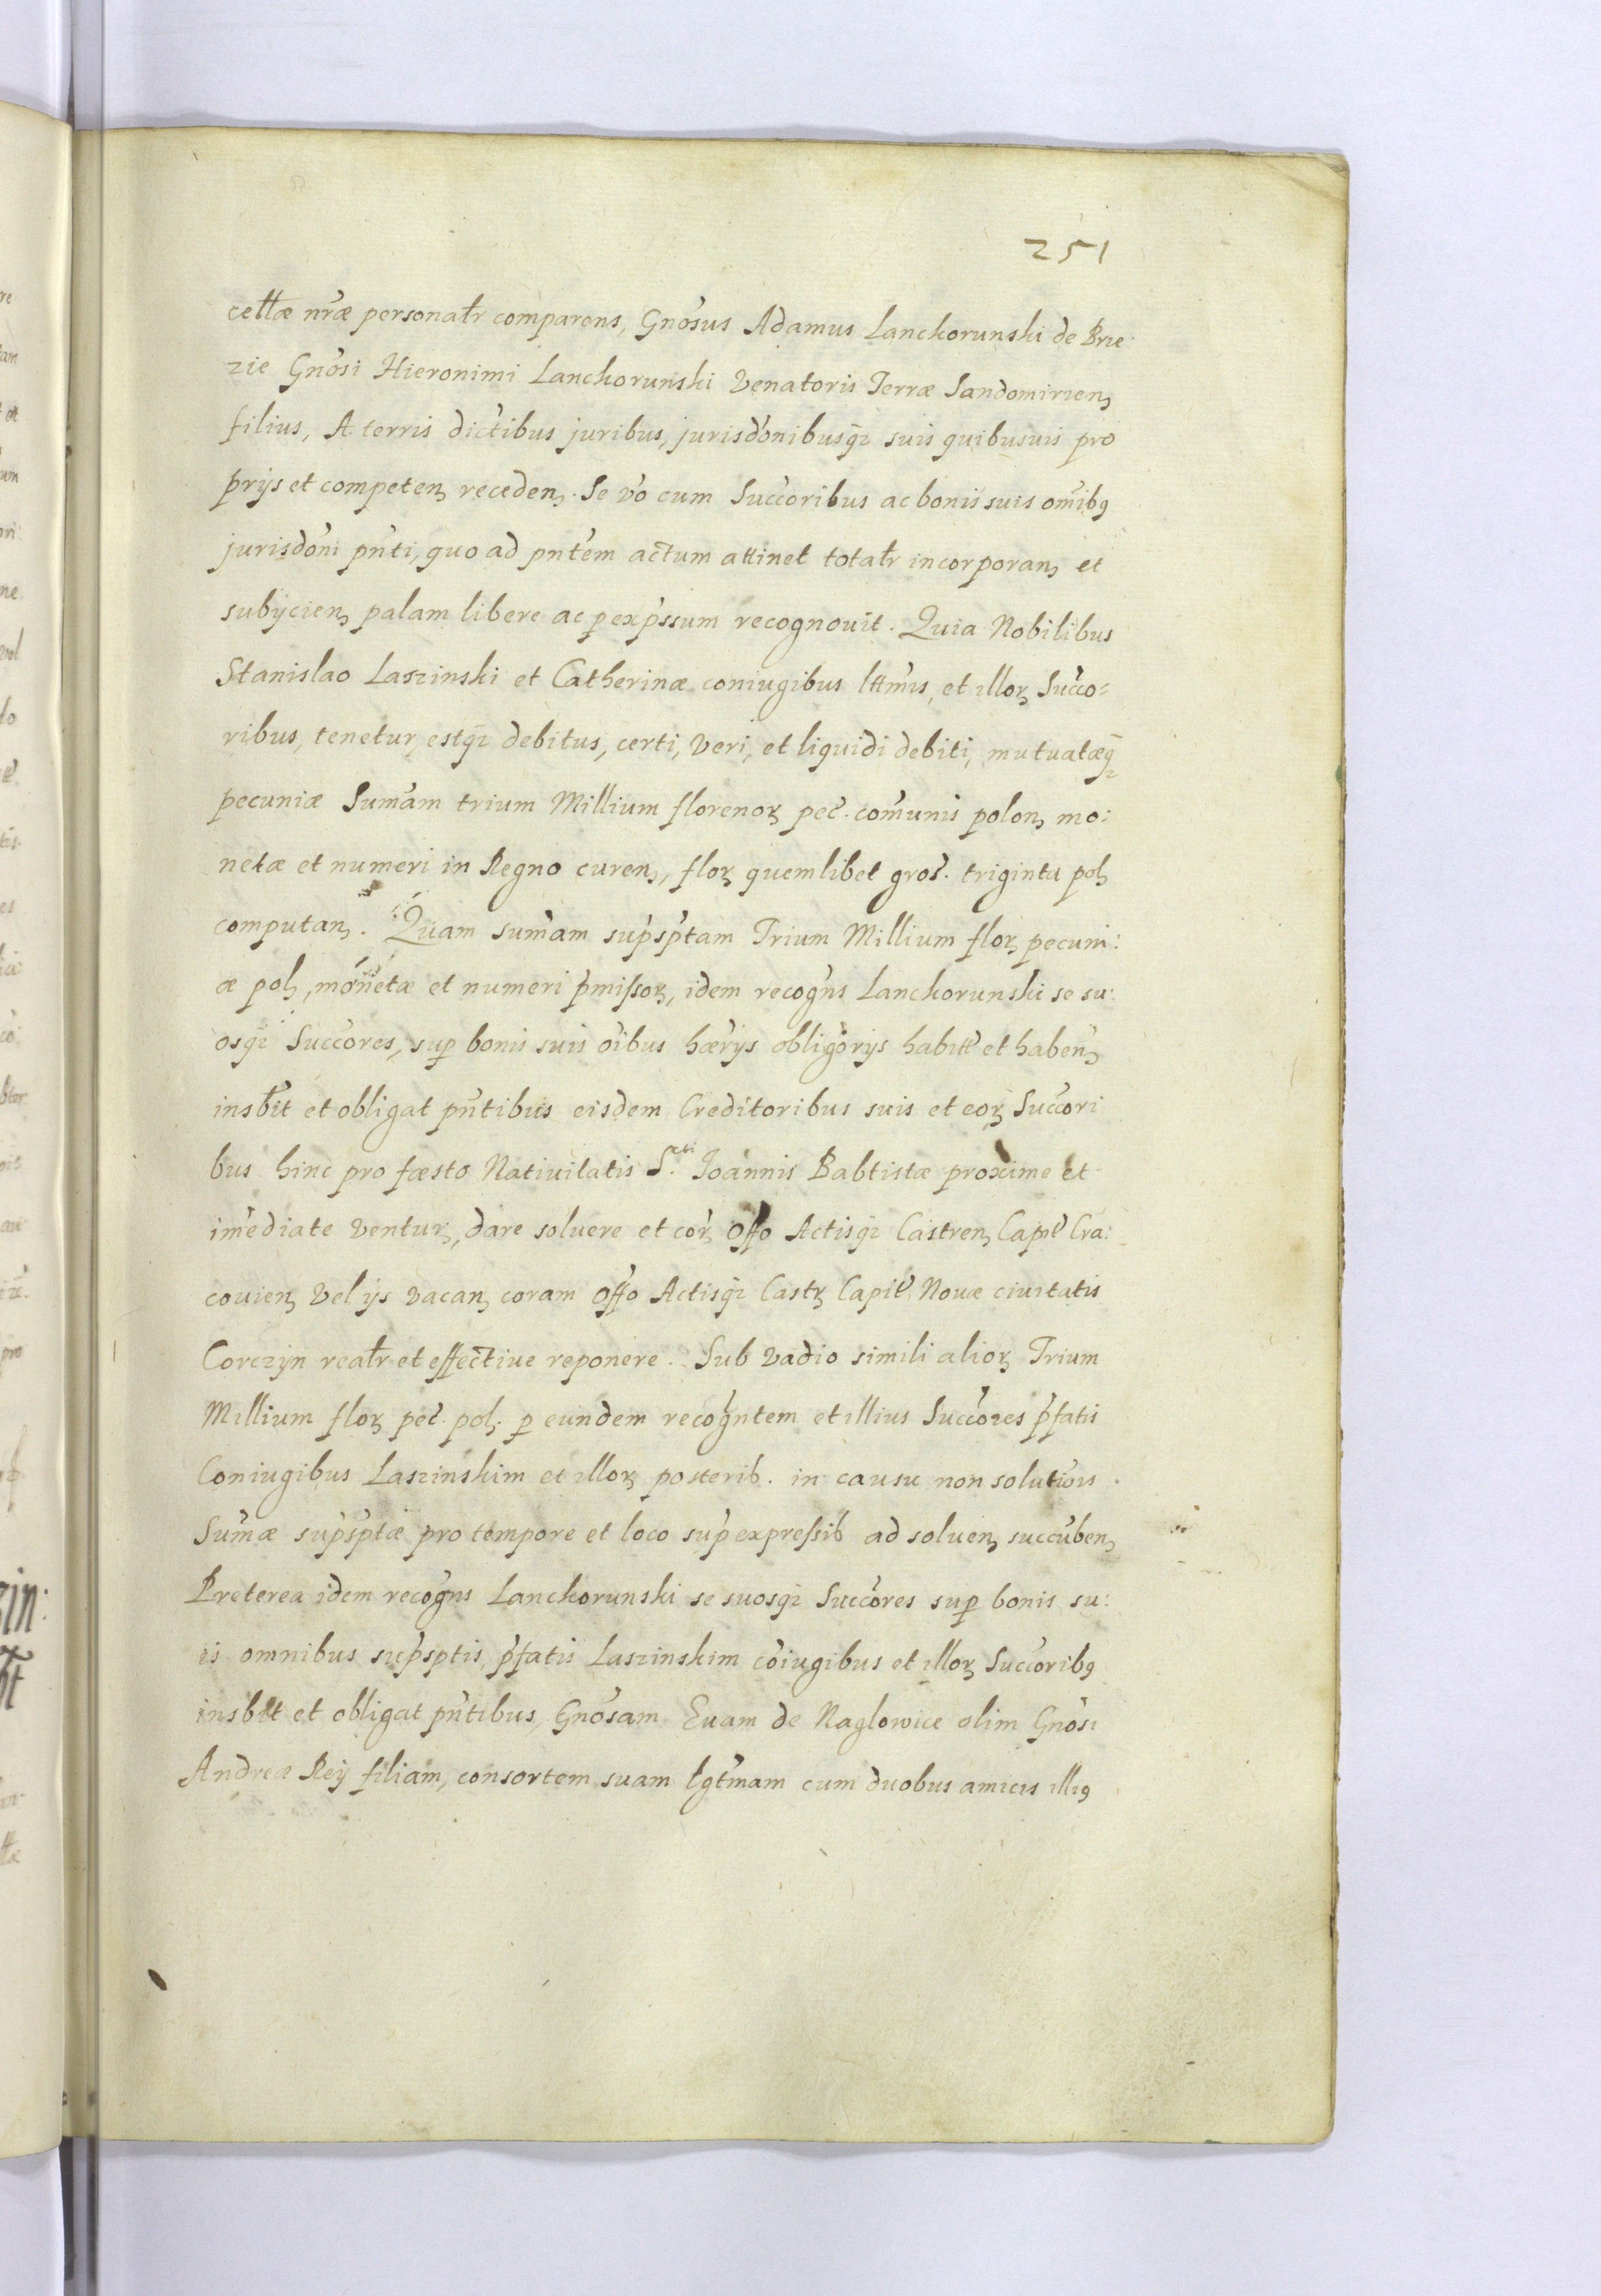 251
cellæ nr̃æ personalr̃ comparens, Gnõsus Adamus Lanckorunski de Brze
zie Gnõsi Hieronimi Lanckorunski Venatoris Terræ Sandomirien̄
filius, A terris dictibus juribus, jurisdõnibusq̃z suis quibusuis pro
prijs et competen̄ receden̄. Se v̊o cum Succõribus ac bonis suis om̃ibꝰ
jurisdõni pñti, quo ad pñtem actum attinet totalr̃ incorporan̄ et
subijcien̄ palam libere ac ꝑ exp̃ssum recognouit. Quia Nobilibus
Stanislao Laszinski et Catherinæ coniugibus lttm̃is, et illoꝝ Succo=
ribus, tenetur estq̃z debitus, certi, veri, et liquidi debiti, mutuatæq̃z
pecuniæ Sum̃am trium Millium florenoꝝ pec̃. com̃unis polon̄ mo:
netæ et numeri in Regno curen̄, floꝝ quemlibet gros̃. triginta pol̄
computan̄. Quam sum̃am sup̃sp̃tam Trium Millium floꝝ pecuni:
æ pol̄, monetæ et numeri p̃missoꝝ, idem recogñs Lanckorunski se su:
osq̃z Succõres, suꝑ bonis suis õibus hæ̃rijs obligõrijs habit̃ et haben̄
insb̃it et obligat pñtibus eisdem Creditoribus suis et eoꝝ Succori
bus hinc pro fæsto Natiuitatis S.cti Joannis Babtistæ proxime et
im̃ediate ventuꝝ, dare soluere et cor̃ Offõ Actisq̃z Castren̄ Capit̃ Cra:
couien̄ vel ijs vacan̄ coram Offõ Actisq̃z Castꝝ Capit̃ Nouæ ciuitatis
Corczijn realr̃ et effectiue reponere. Sub vadio simili alioꝝ Trium
Millium floꝝ pec̃ pol̄. ꝑ eundem recogñtem et illius Succõres p̃fatis
Coniugibus Laszinskim et illoꝝ posterib. in causu non solutiõis.
Sum̃æ sup̃sp̃tæ pro tempore et loco sup̃ expressib ad soluen̄ succũben̄
Preterea idem recogñs Lanckorunski se suosq̃z Succõres suꝑ bonis su:
is omnibus sup̃sptis, p̃fatis Laszinskim cõiugibus et illoꝝ Succõribꝰ
insbit et obligat pñtibus, Gnõsam Euam de Naglowice olim Gnõsi
Andreæ Reij filiam, consortem suam lgtm̃am cum duobus amicis illiꝰ